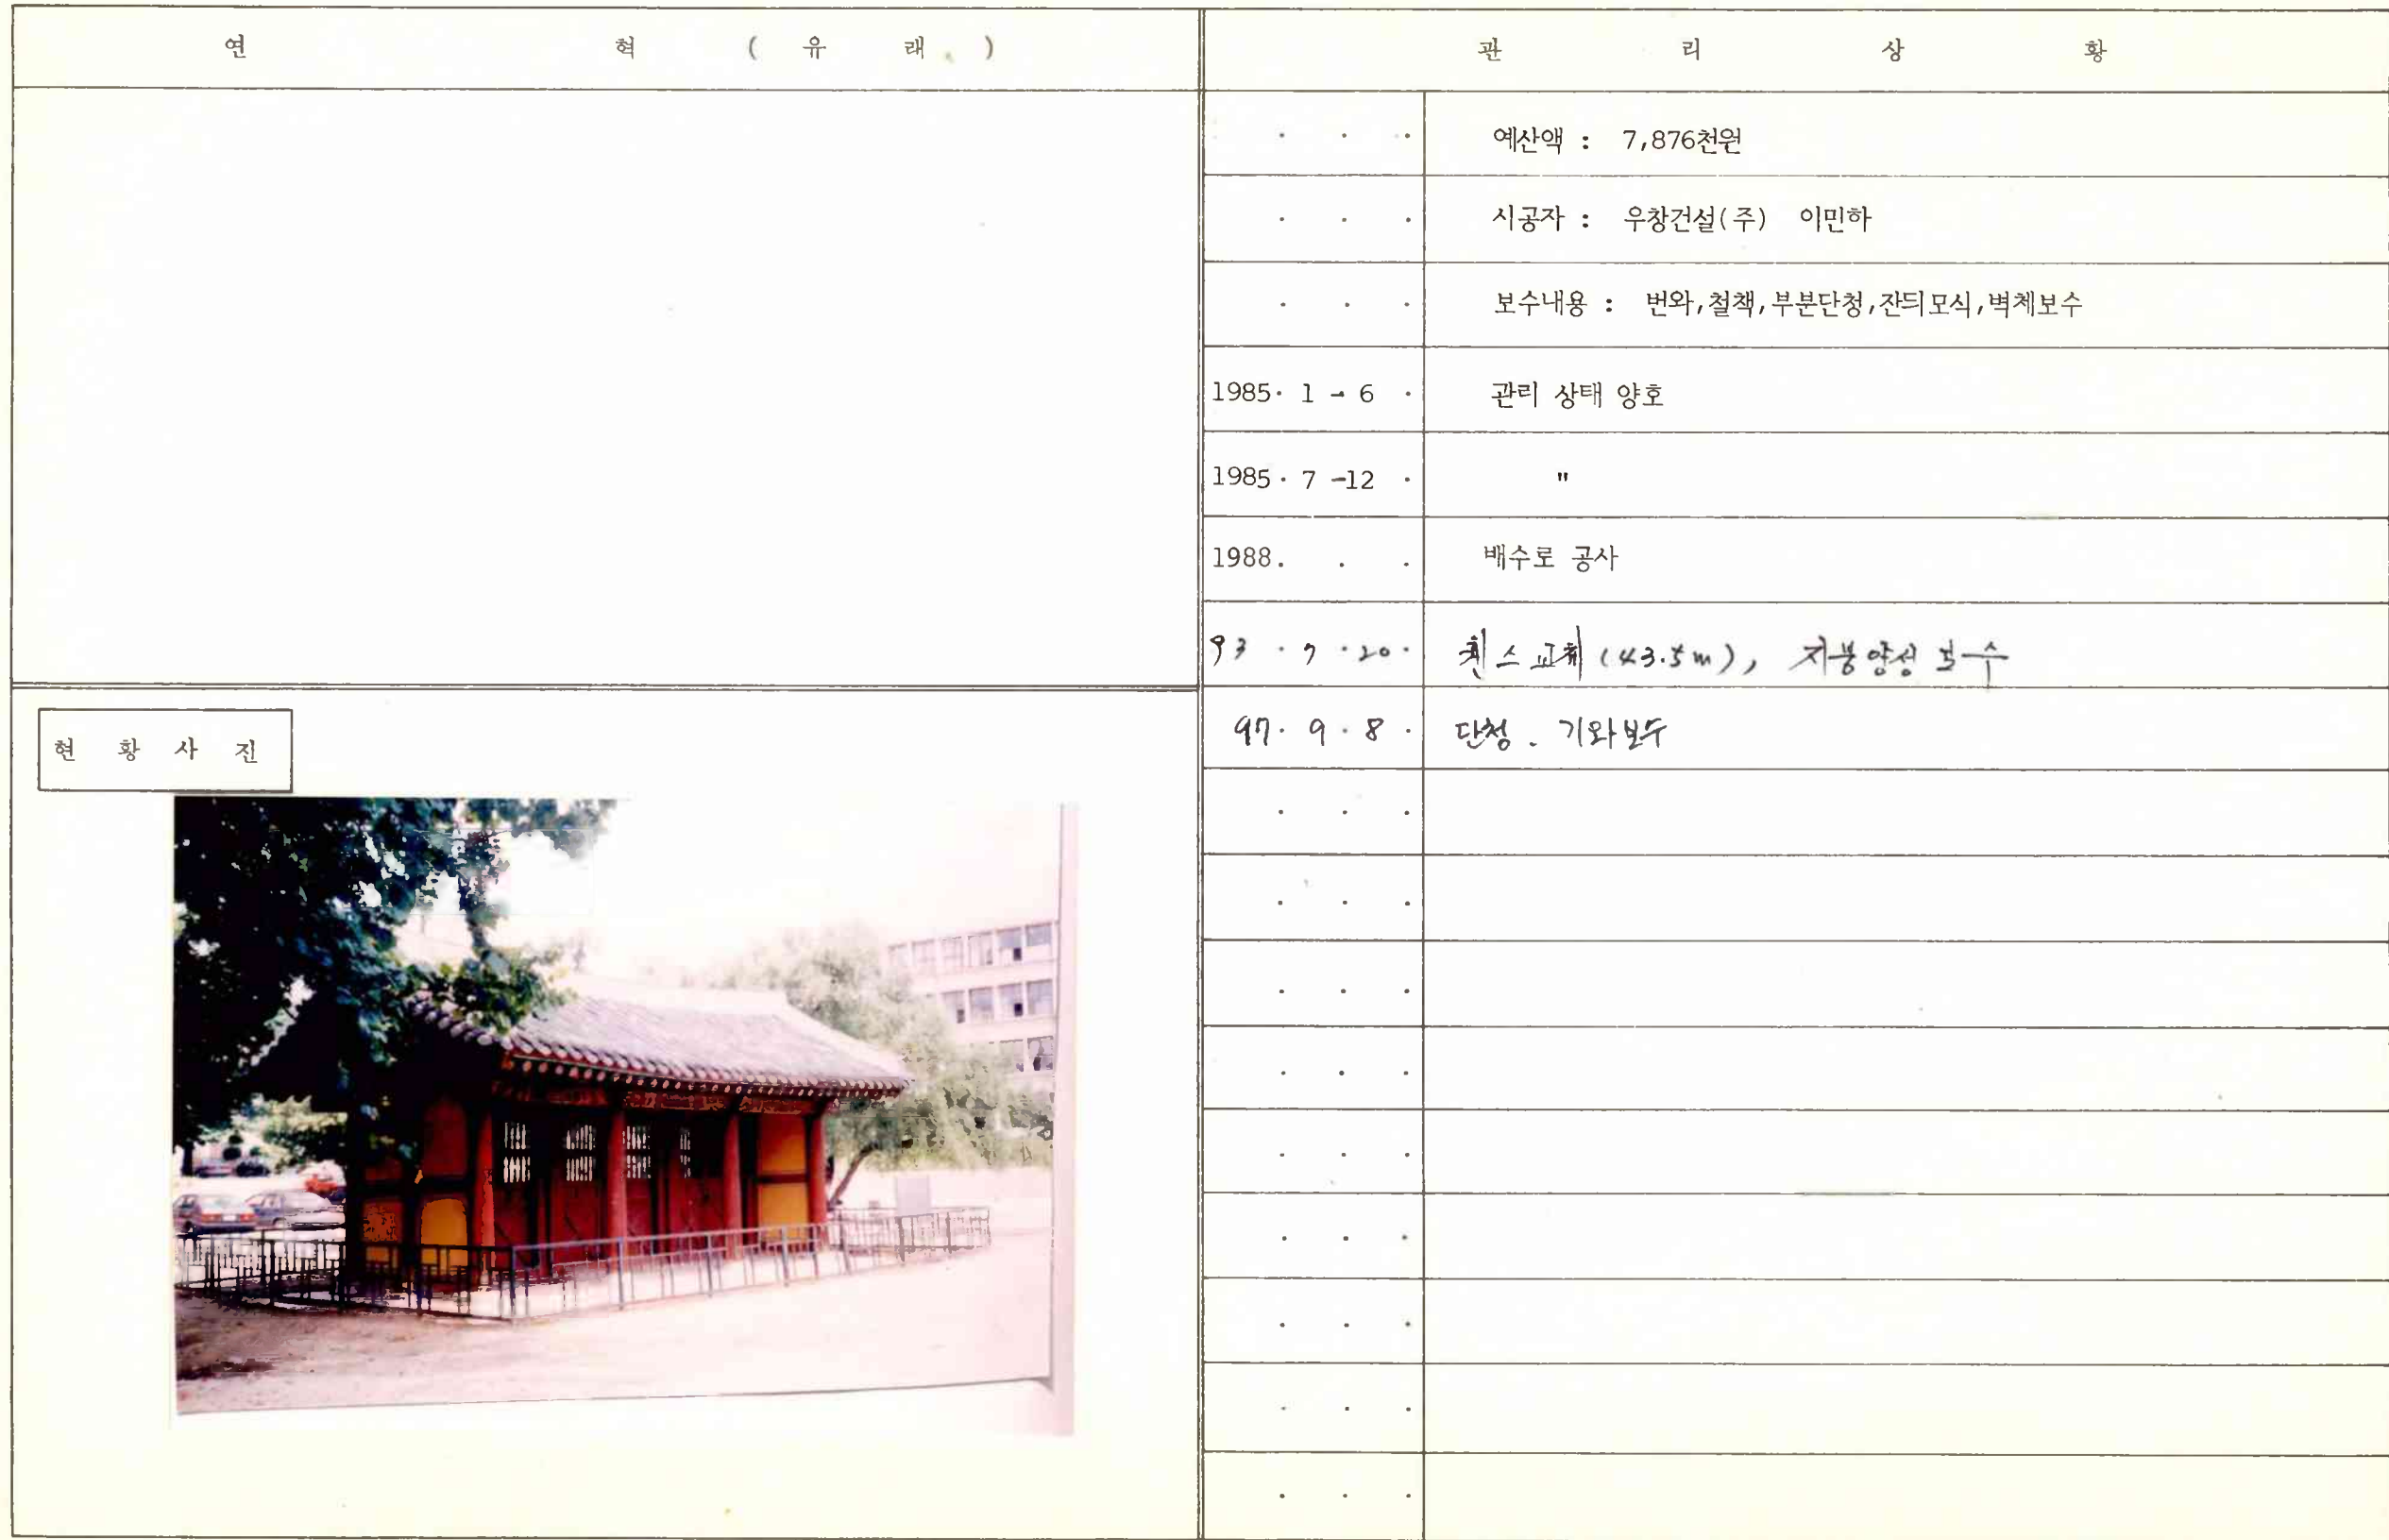 연 혁 ( 유 래 )
관 리 상 황
예산액 : 7,876천원
시공자 : 우창건설(주) 이민하
보수내용 : 번와,철책,부분단청,잔듸모식,벽체보수
1985. 1 - 6 . 관리 상태 양호
1985. 7 -12 . "
1988. . . 배수로 공사
93 . 7 . 20 . 휀스교체 (43.5m), 지붕양성 보수
97. 9. 8. 단청. 기와보수
현 황 사 진